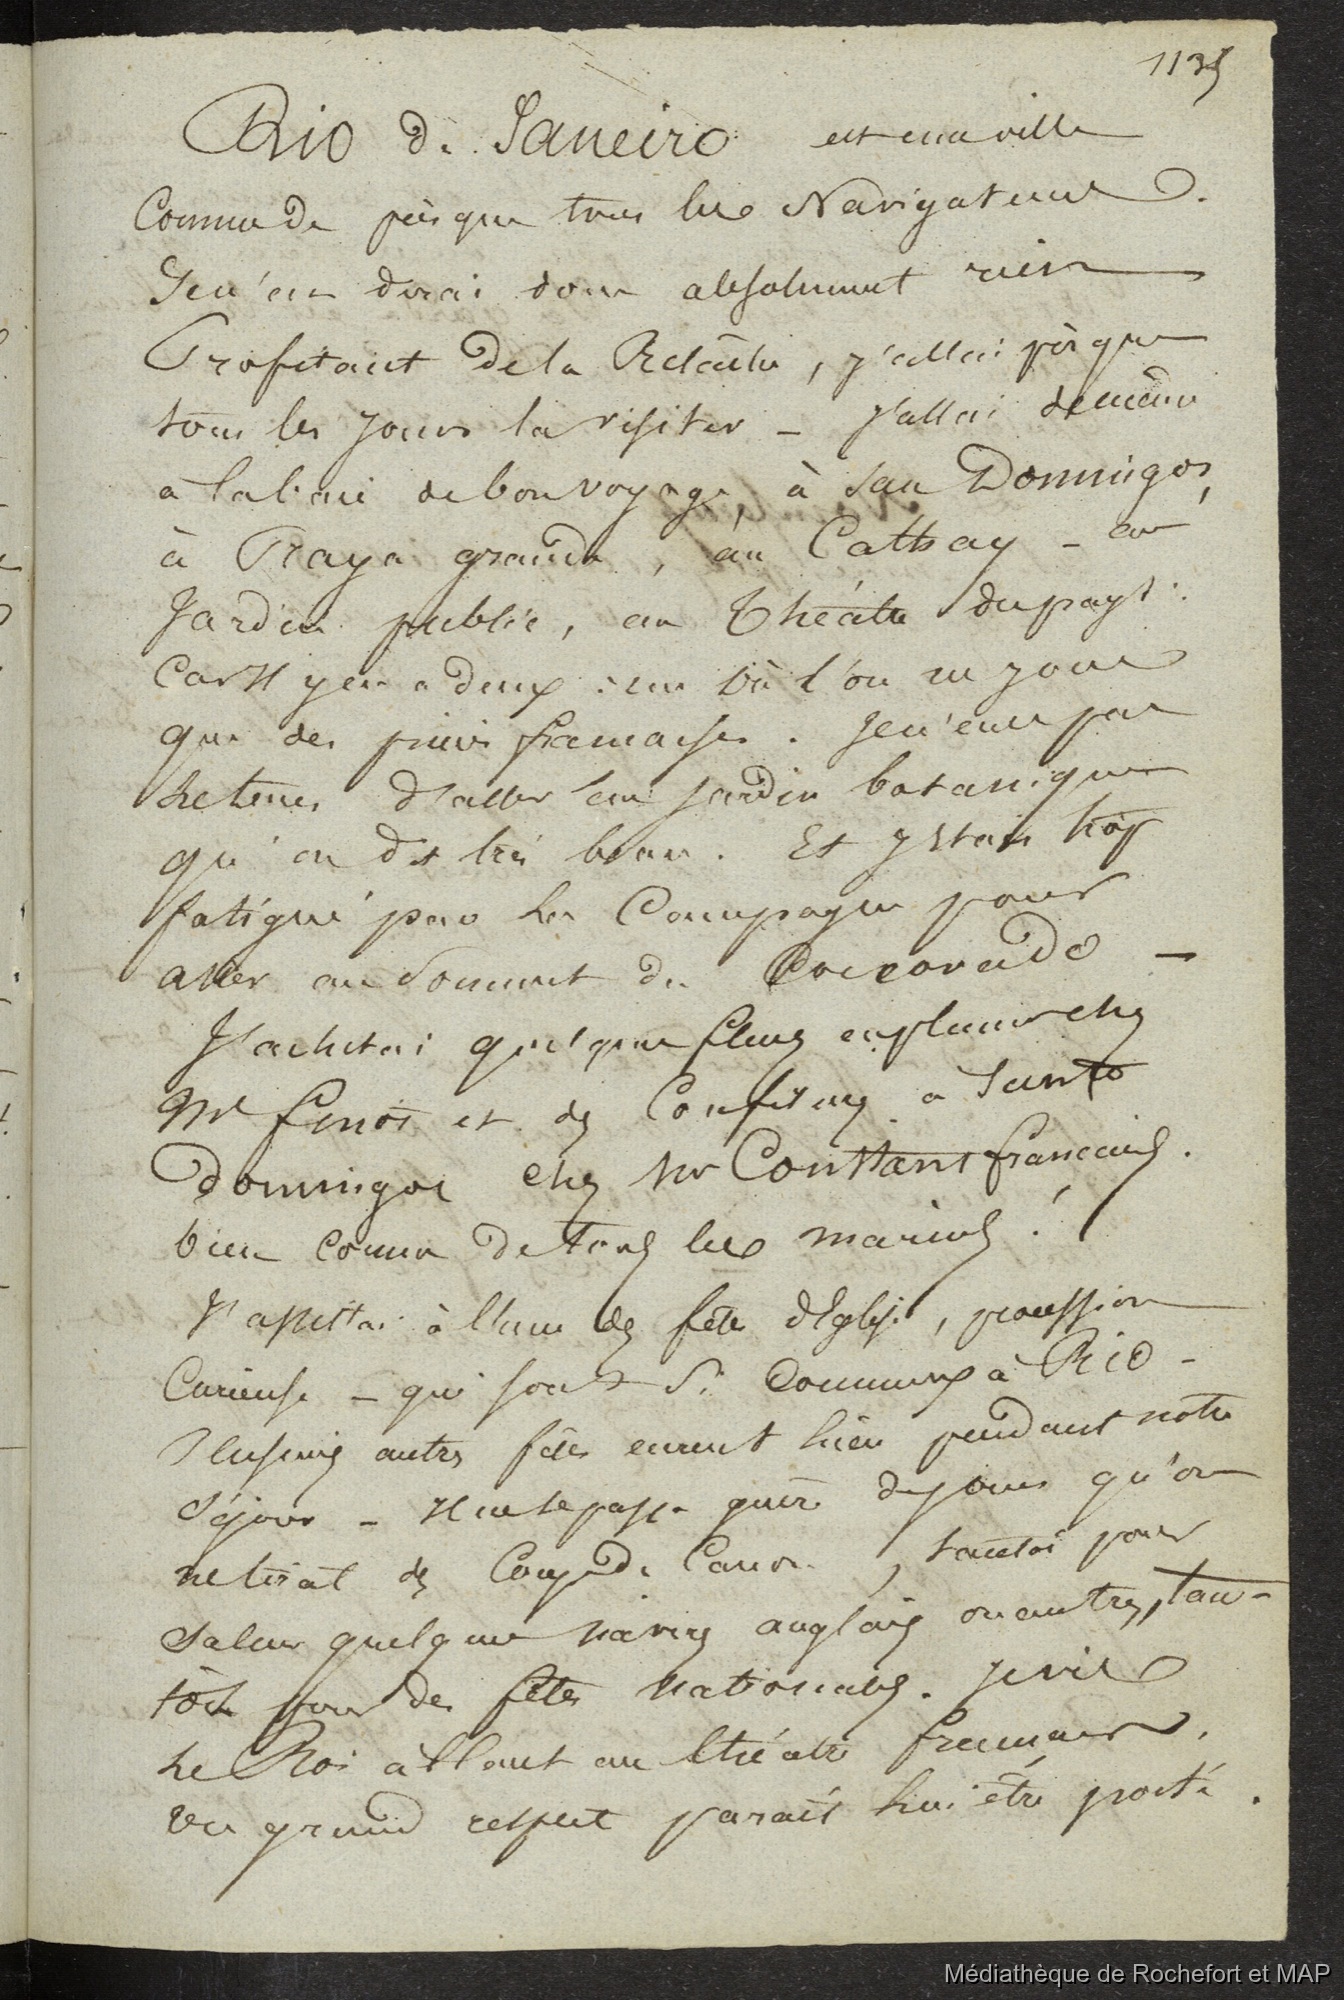 1135
Rio de Janeiro est une ville
Connue de presque tous les Navigateurs.
Je n'en dirai donc absolument rien
Profitant de la Relâche, j'allai presque
tous les jours la visiter - J'allai de même
a la baie de bon voyage, à san Domingos,
à Praya grande, au Cathay - au
Jardin public, au Théâtre du pays:
Car Il y en a deux: un où l'on ne joue
que des pièces françaises. Je n'eus pas
le tems d'aller au jardin botanique
qu'on dit très beau. Et j'étais trop
fatigué par la Campagne pour
aller au Sommet du Corcovado -
J'achetai quelques fleurs en plumes chez
Mr finot et des Confitures a Santo
Domingos chez Mr Constant français.
bien connu de tous les marins!
J'assistai à l'une des fêtes d'Eglise, procession
Curieuse - qui sont Si Communes à Rio -
Plusieurs autres fêtes eurent lieu pendant notre
séjour - Il ne se passa guère de jours qu'on
ne tirat des Coups de Canon, tantôt pour
saluer quelques navires anglais ou autres, tan-
tôt pour des fêtes nationales. Je vis
le Roi allant au théâtre français.
Un grand respect parait lui être porté.
Médiathèque de Rochefort et MAP